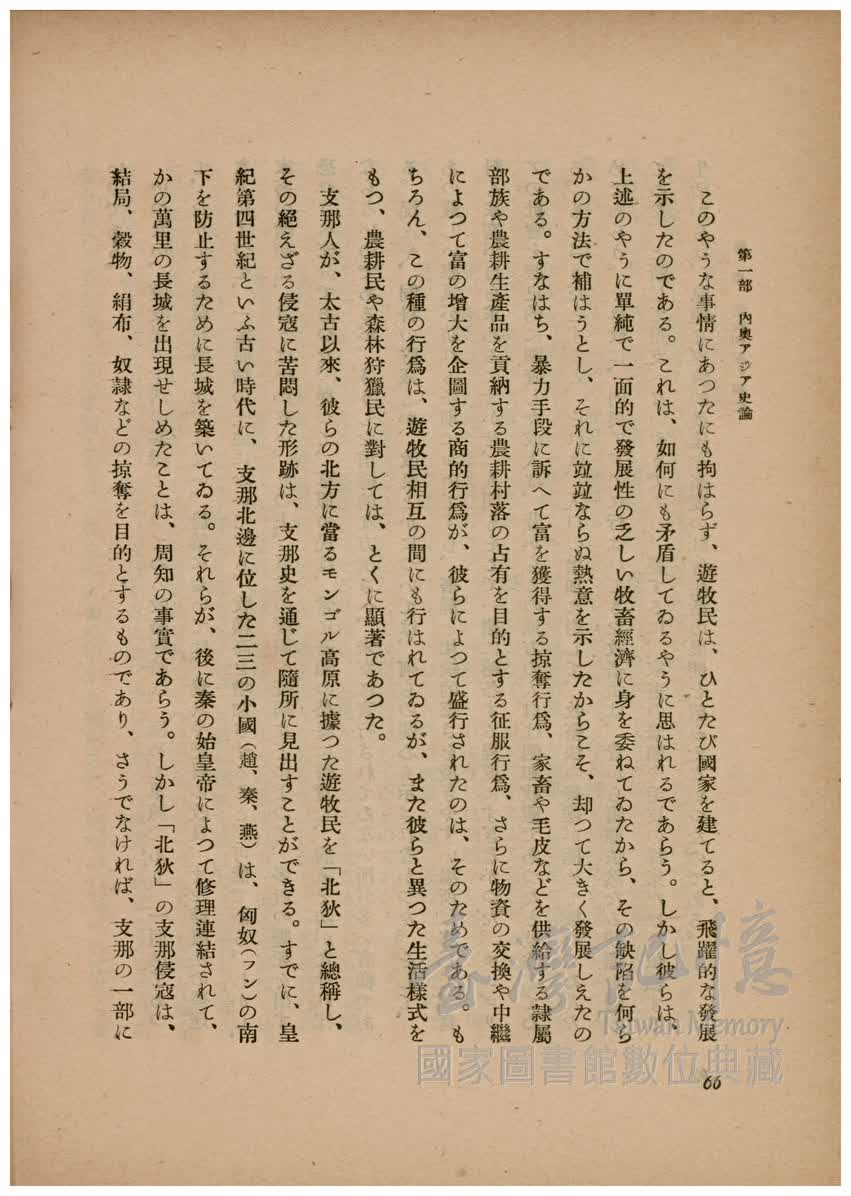 第一部 內奧アジア史論
このやうな事情にあつたにも拘はらず、遊牧民は、ひとたび國家を建てると、飛躍的な發展
を示したのである。これは、如何にも矛盾してゐるやうに思はれるであらう。しかし彼らは、
上述のやうに單純で一面的で發展性の乏しい牧畜經濟に身を委ねてゐたから、その缺陷を何ら
かの方法で補はうとし、それに竝竝ならぬ熱意を示したからこそ、却つて大きく發展しえたの
である。すなはち、暴力手段に訴へて富を獲得する掠奪行爲、家畜や毛皮などを供給する隸屬
部族や農耕生產品を貢納する農耕村落の占有を目的とする征服行爲、さらに物資の交換や中繼
によつて富の增大を企圖する商的行爲が、彼らによつて盛行されたのは、そのためである。も
ちろん、この種の行爲は、遊牧民相互の間にも行はれてゐるが、また彼らと異つた生活樣式を
もつ、農耕民や森林狩獵民に對しては、とくに顯著であつた。
支那人が、太古以來、彼らの北方に當るモンゴル高原に據つた遊牧民を「北狄」と總稱し、
その絕えざる侵寇に苦悶した形跡は、支那史を通じて隨所に見出すことができる。すでに、皇
紀第四世紀といふ古い時代に、支那北邊に位した二三の小國（趙、秦、燕）は、匈奴（フン）の南
下を防止するために長城を築いてゐる。それらが、後に秦の始皇帝によつて修理連結されて、
かの萬里の長城を出現せしめたことは、周知の事實であらう。しかし「北狄」の支那侵寇は、
結局、穀物、絹布、奴隸などの掠奪を目的とするものであり、さうでなければ、支那の一部に
66
臺灣記憶
Taiwan Memory
國家圖書館數位典藏